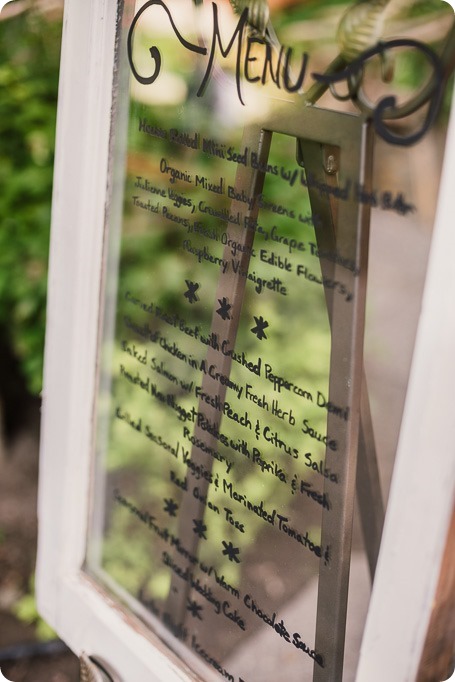 MENU
Mini Seed Buns w/
Organic Mixed Baby Greens
Julienne Veggies, Crumbled Feta, Grape Tomatoes,
Toasted Pecans, Fresh Organic Edible Flowers,
Raspberry Vinaigrette
* * *
Carved Roast Beef with Crushed Peppercorn Demi
Chicken in A Creamy Fresh Herb Sauce
Baked Salmon w/ Fresh Peach & Citrus Salsa
Roasted Nugget Potatoes with Paprika & Fresh
Rosemary
Grilled Seasonal Veggies & Marinated Tomatoe &
Red Onion Toss
* * *
Seasonal Fruit w/ Warm Chocolate Sauce
Wedding Cake
*
Icecream